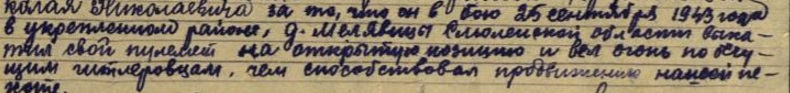 колая Николаевича за то, что он в бою 25 сентября 1943 года
в укрепленном районе, д. Мелявицы Смоленской области выка-
тил свой пулемет на открытую позицию и вел огонь по бегу-
щим гитлеровцам, чем способствовал продвижению нашей пе-
хоте.